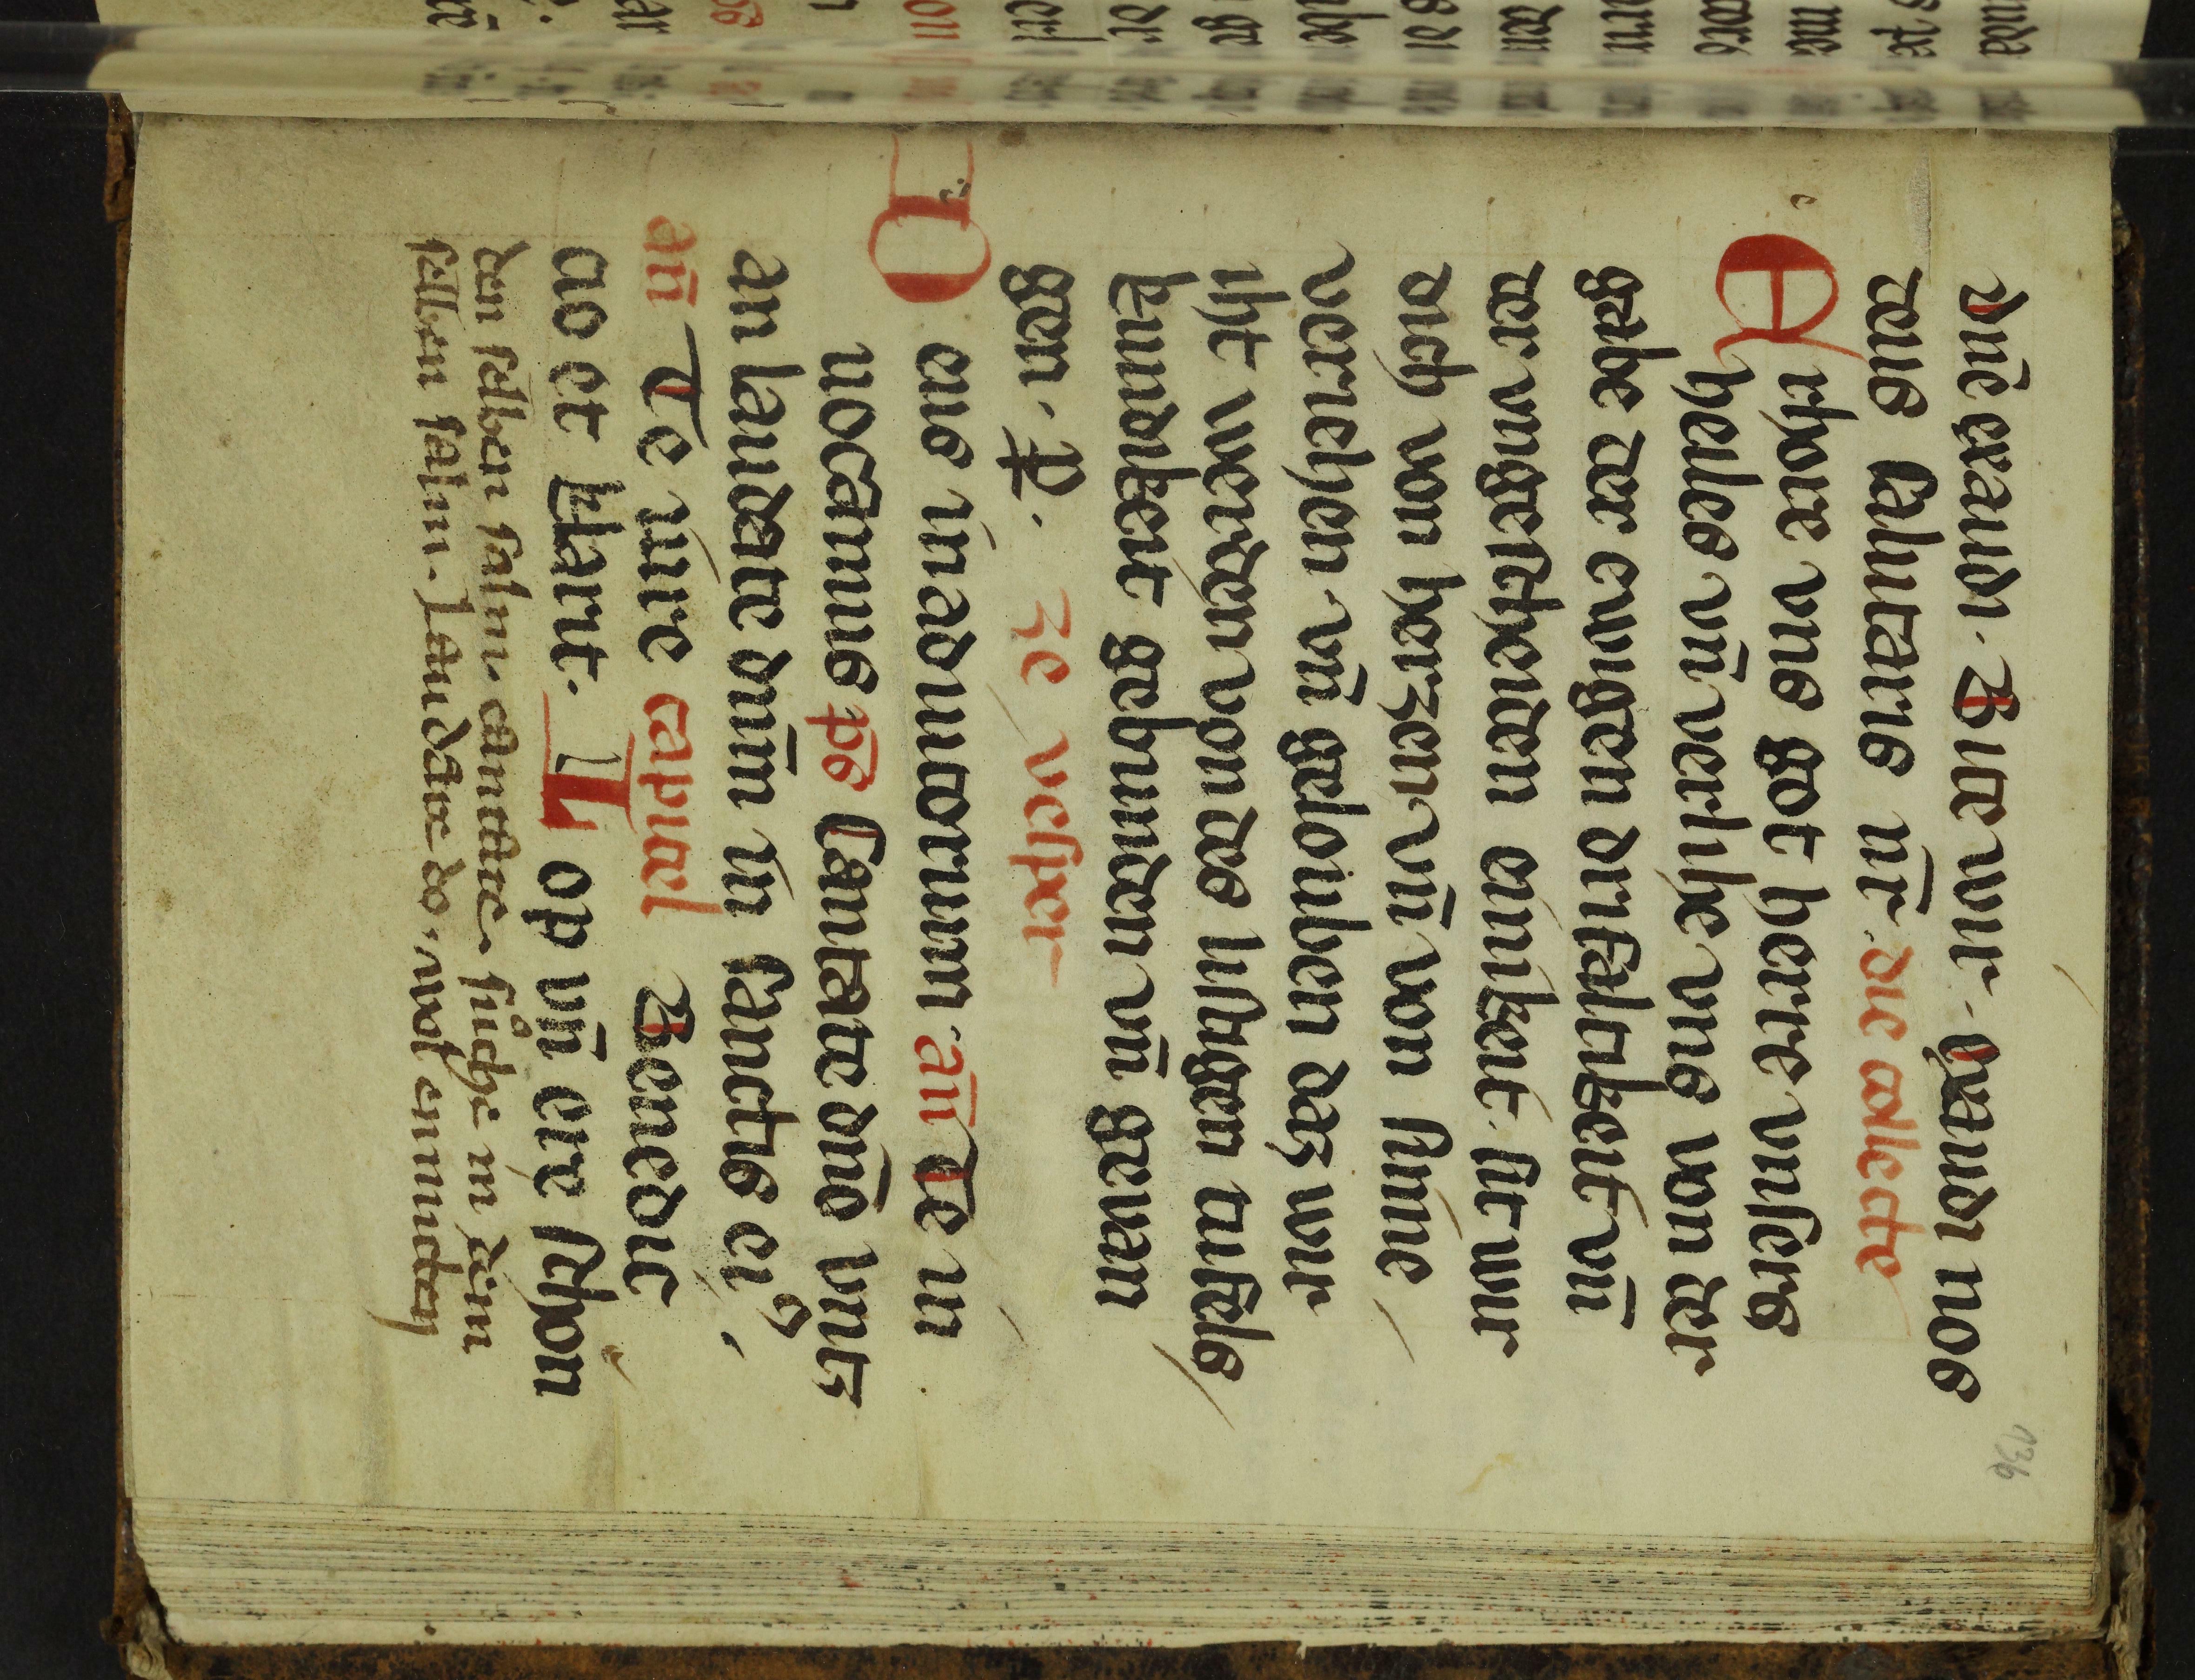 dn̄e exaudi. Bitte wir. Exaudi nos
deus salutaris nr̄. die collecte
Erhore vns got herre vnsers
heiles vn̄ verlihe vns von der
gabe der ewigen driualtikeit vn̄
der vngescheiden einikeit. sit wir
dich von herzen vn̄ von sinne
veriehen. vn̄ gelouben daz wir
iht werden von des listigen tiufels
kundikeit gebunden vn̄ gevan
gen. A. ze vesper
Deus in adiutorium an̄ Te in
uocamus ps̄ Cantate dn̄o vnts
an laudate dn̄m in sanctis ei9
an̄ Te iure capitel Benedic
tio et klarit. Lop vn̄ ere schon
den selben salm. cantate. suͦche in dem
selben salm. Laudate do. wol enmiten
136